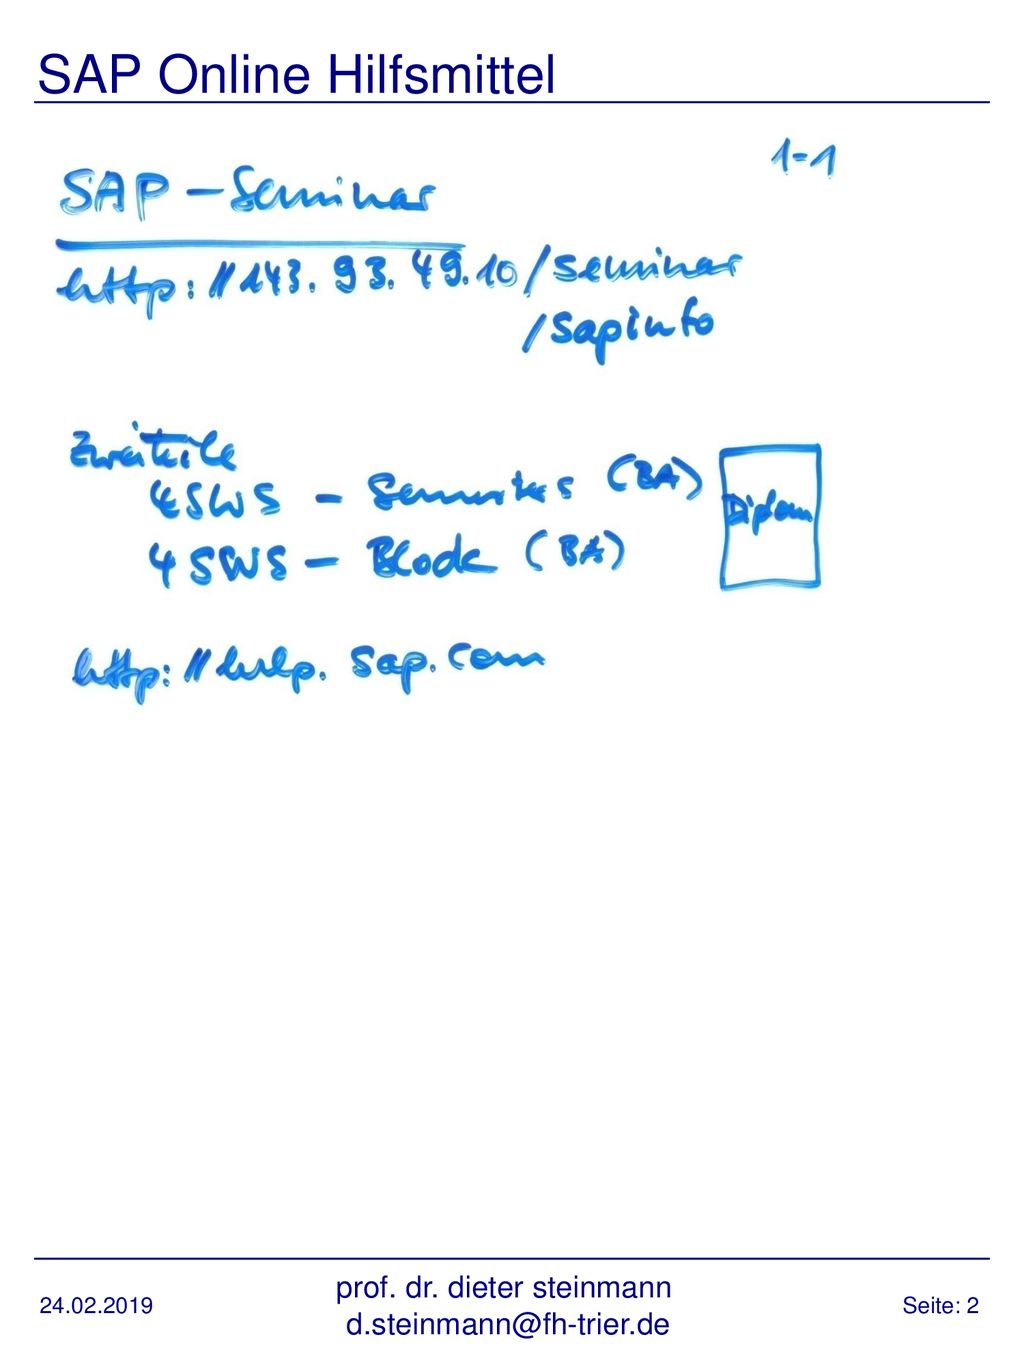 SAP Online Hilfsmittel
1-1
SAP - Seminar
http://143.93.49.10/seminar
/sapinfo
Zweiteile
4 SWS - Semester (BA)
Diplom
4 SWS - Block (BA)
http://help.sap.com
24.02.2019
prof. dr. dieter steinmann
d.steinmann@fh-trier.de
Seite: 2